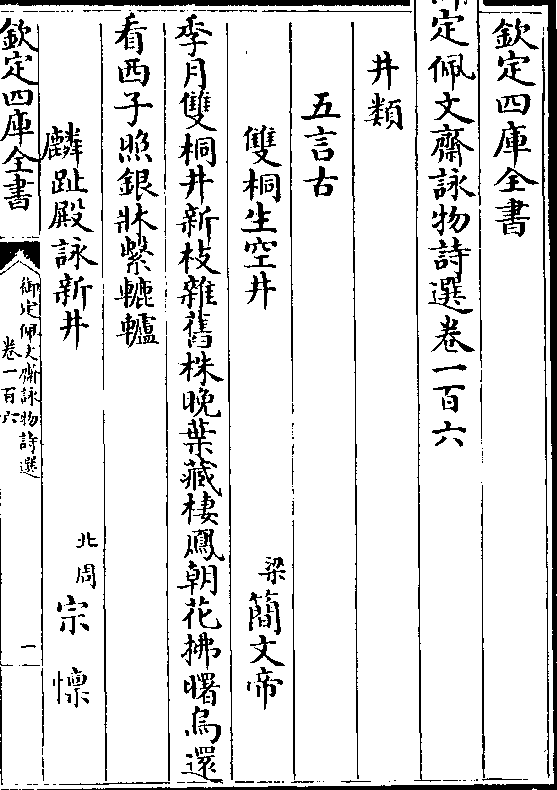 欽定四庫全書
定佩文齋詠物詩選卷一百六
井類
五言古
雙桐生空井　梁簡文帝
季月雙桐井新枝雜舊株晚葉藏棲鳳朝花拂曙烏還
看西子照銀牀繫轆轤
麟趾殿詠新井　北周宗懔
欽定四庫全書
御定佩文齋詠物詩選
卷一百六
一